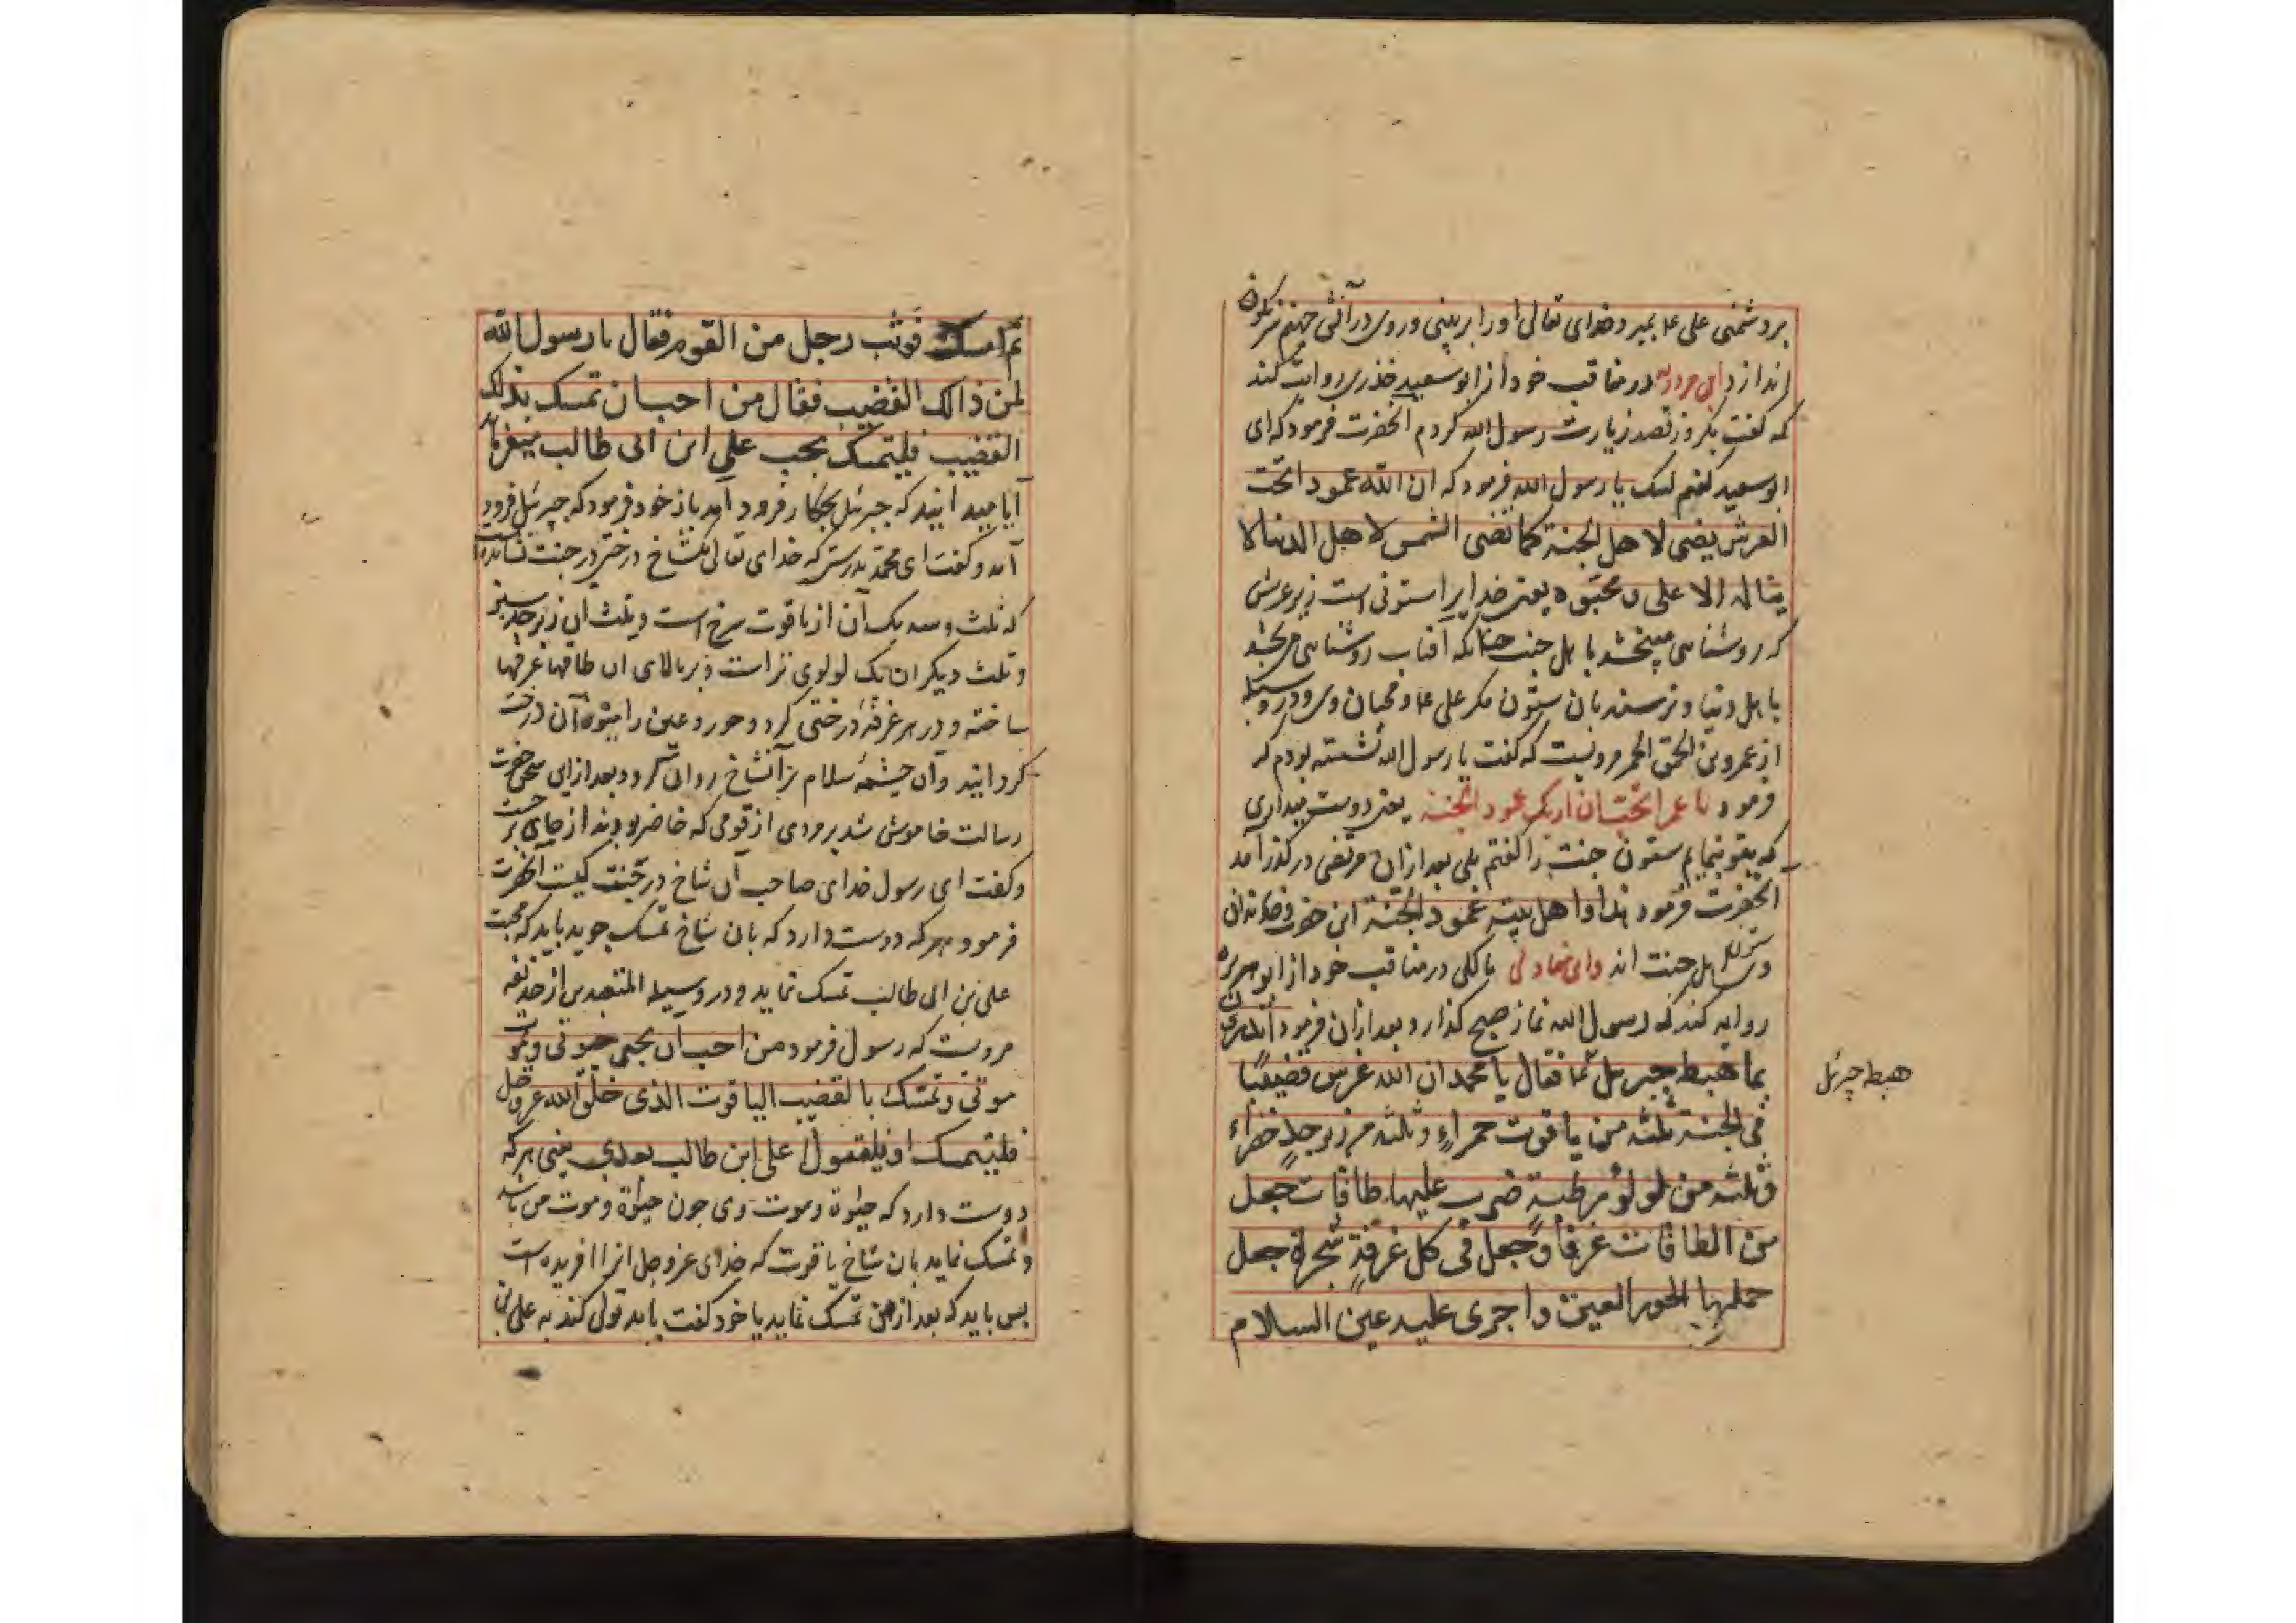 بر دشمنی علی ع بمیرد خدای تعالی اورا بر بینی و روی در آتش جهنم سرنکون
اندازد ابن مردویه در مناقب خود از ابو سعید خذری روایت کند
که کفت یکروز قصد زیارت رسول الله کردم آنحضرت فرمود که ای
ابو سعید کفتم لبیک یا رسول الله فرمود که ان الله عمود اتحت
العرش یضی لاهل الجنة کما تضی الشمس لاهل الدنیا لا
یناله الا علی و محبوه یعنی خدایرا ستونی است زیر عرش
که روشناهی میبخشد با هل جنت چنانکه آفتاب روشناهی می بخشد
با هل دنیا و نرسند بان ستون مکر علی ع و محبان وی و در وسیله
از عمرو بن الحمق الحمر مرویست که کفت با رسول الله نشسته بودم که
فرمود یا عمر اتحب ان اریک عمود الجنة یعنی دوست میداری
که بتو بنمایم ستون جنت را کفتم بلی بعد ازان مرتضی در کذر آمد
آنحضرت فرمود هذا و اهل بیته عمود الجنة این
اهل جنت اند و در مناقب خود از ابو هریره
روایه کند که رسول الله نماز صبح کذارد و بعد ازان فرمود اتدرون
بما هبط جبرئیل ثما فقال یا محمد ان الله غرس قضیبًا
فی الجنة ثلثه من یاقوت حمراءٍ و ثلثه من زبرجدٍ خضراء
و ثلثه من لولوء رطبةٍ ضرب علیها طاقات جعل
من الطاقات غرفًا و جعل فی کل غرفةٍ شجرة جعل
حملها الحور العین و اجری علیه عین السلام
هبط جبرئیل
ثم امسک فوثب رجل من القوم فقال یا رسول الله
لمن ذالک القضیب فقال من احب ان تمسک بذلک
القضیب فلیتمسک بحب علی ابن ابی طالب میفرماید
آیا میدانید که جبرئیل بچکار فرود آمد باز خود فرمود که جبرئیل فرود
آمد و کفت ای محمد بدرستی که خدای تعالی یکشاخ درختی در جنت نشانده است
که ثلث و سه یک آن از یاقوت سرخ است و ثلث ان زبرجد سبز
و ثلث دیکر ان یک لولوی تر است و بر بالای ان طاقها غرفها
ساخته و در هر غرفهٔ درختی کرد و حور و عین را میوهٔ آن درخت
کردانید و آن چشمهٔ سلام بر آنشاخ روان کرد و بعد از این سخن حضرت
رسالت خاموش شد مردی از قومی که حاضر بودند از جای بر جست
و کفت ای رسول خدای صاحب آن شاخ در جنت کیست آنحضرت
فرمود هر که دوست دارد که بان شاخ تمسک جوید باید که بمحبت
علی بن ابی طالب تمسک نماید و در وسیله المتعبدین از حذیفه
مرویست که رسول فرمود من احب ان یحیی حیوتی و یموت
موتی و تمسک بالقضیب الیاقوت الذی خلق الله عز وجل
فلیتمسک او فلیقول علی ابن طالب بعدی یعنی هر که
دوست دارد که حیوة و موت وی چون حیوة و موت من باشد
و تمسک نماید بان شاخ یاقوت که خدای عز و جل انرا افریده است
پس باید که بعد از من تمسک نماید یا خود کفت باید تولی کند به علی بن